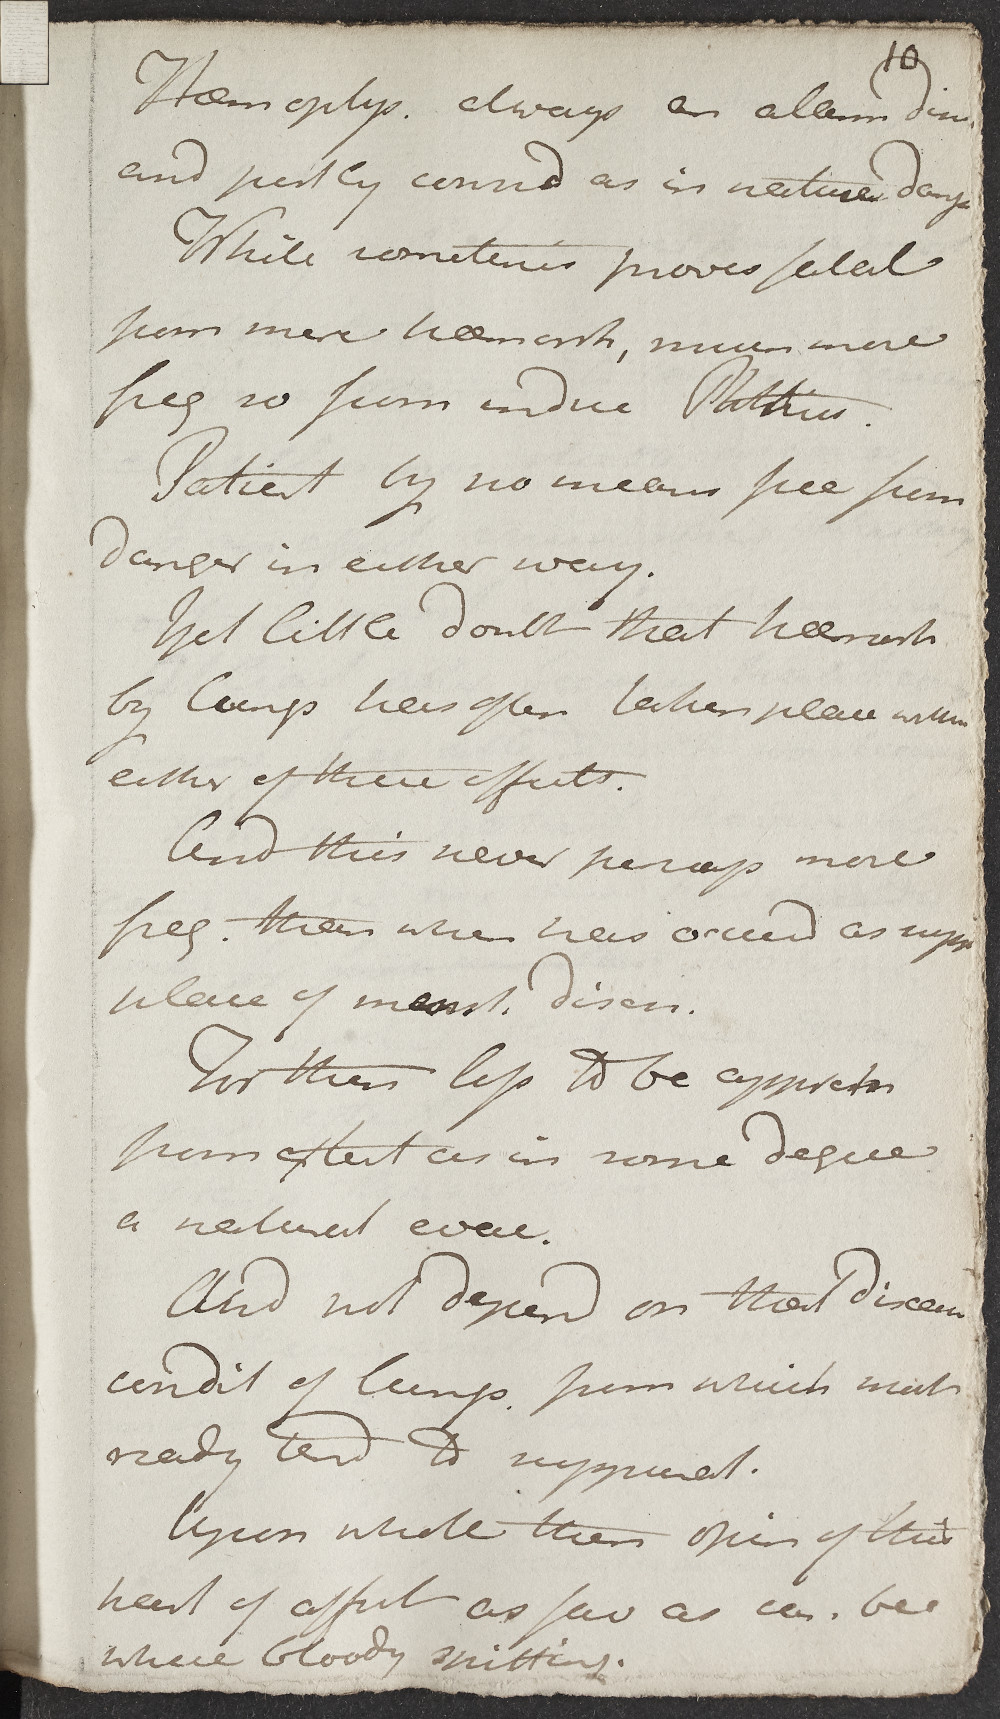 10
Hæmoptys. always an alarm dise.
and justly consid as in nature dang
While sometimes proves fatal
from mere hæmorrh, much more
freq so from induc Phthisis.
Patient by no means free from
danger in either way.
Yet little doubt that hæmorrh
by lungs has often taken place witho
either of these effects.
And this never perhaps more
freq. than when has occurd as supp
place of menst. disch.
For then less to be appreh
from effect as in some degree
a natural evac.
And not depend on that diseas
condit of lungs. from which most
ready tend to suppurat.
Upon whole then opin of this
part of affect as fav as can. be
where bloody spitting.